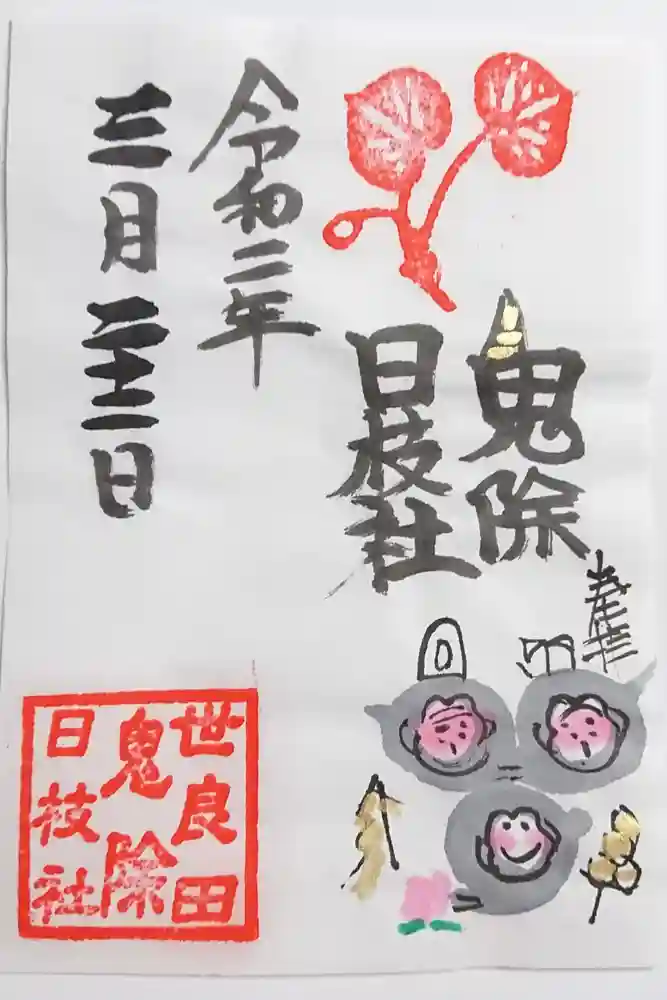 奉拝
鬼除
日枝社
令和二年
三月二十二日
世良田
鬼除
日枝社